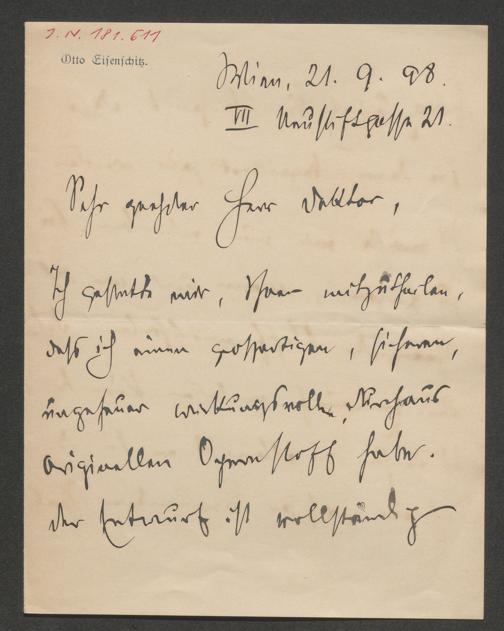 I. N. 181.611
Otto Eisenschitz.
Wien, 21. 9. 98.
VII Neustiftgasse 21.
Sehr geehrter Herr Doktor,
Ich gestatte mir, Ihnen mitzutheilen,
daß ich einen großartigen, sicheren,
ungeheuer wirkungsvollen, durchaus
originellen Opernstoff habe.
Der Entwurf ist vollständig